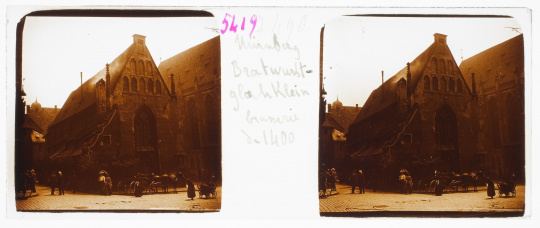 5419
Nürnberg
Bratwurst-
glöcklein
de 1400